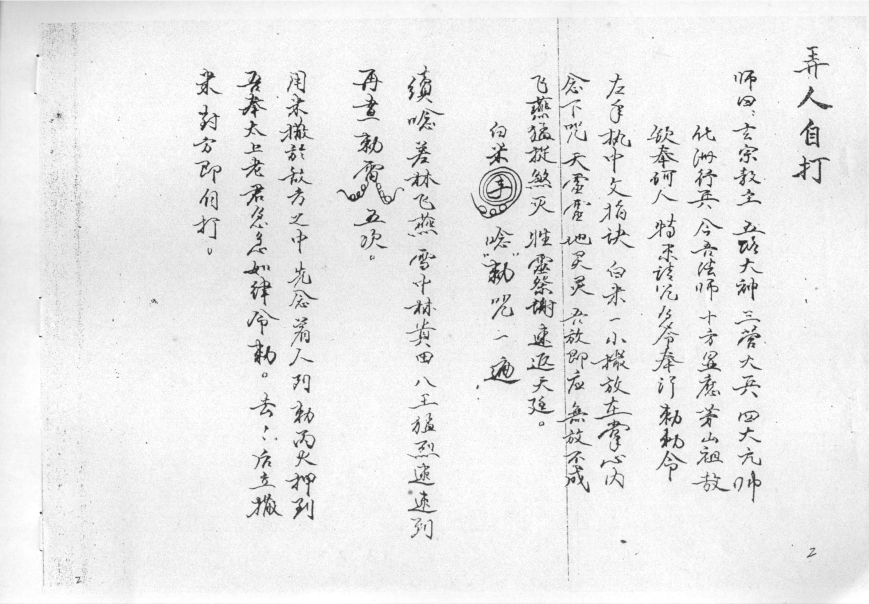 弄人自打
师曰：玄宗教主 五路大神 三营大兵 四大元帅
化洲行兵 今吾法师 十方显应 茅山祖教
欽奉 人 特来 奉行 勅勅令
左手执中文指诀 白米一小撮放在掌心内
念下咒 天灵灵 地灵灵 吾放即应 無放不成
飞燕猛捉煞灭 性靈祭謝 速返天廷。
白米 手 唸"勅咒一遍
續唸 若林飞燕 雪中林黄田 八王猛烈 速列
再畫勅雷 五次。
用米撒於敌方之中 先念着人列 勅丙火押到
吾奉太上老君急急如律令勅。去 后立撒
米 對方即自打。
2
2